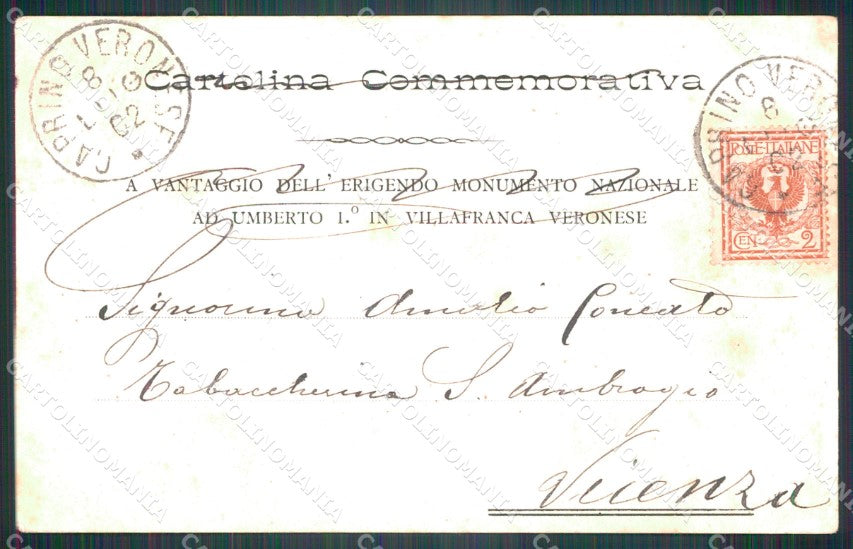 CAPRINO VERONESE
Cartolina Commemorativa
A VANTAGGIO DELL' ERIGENDO MONUMENTO NAZIONALE
AD UMBERTO I.º IN VILLAFRANCA VERONESE
POSTE ITALIANE
CEN 2
Signorina Amelio Concato
Tabaccheria S. Ambrogio
Vicenza
CARTOLINOMANIA